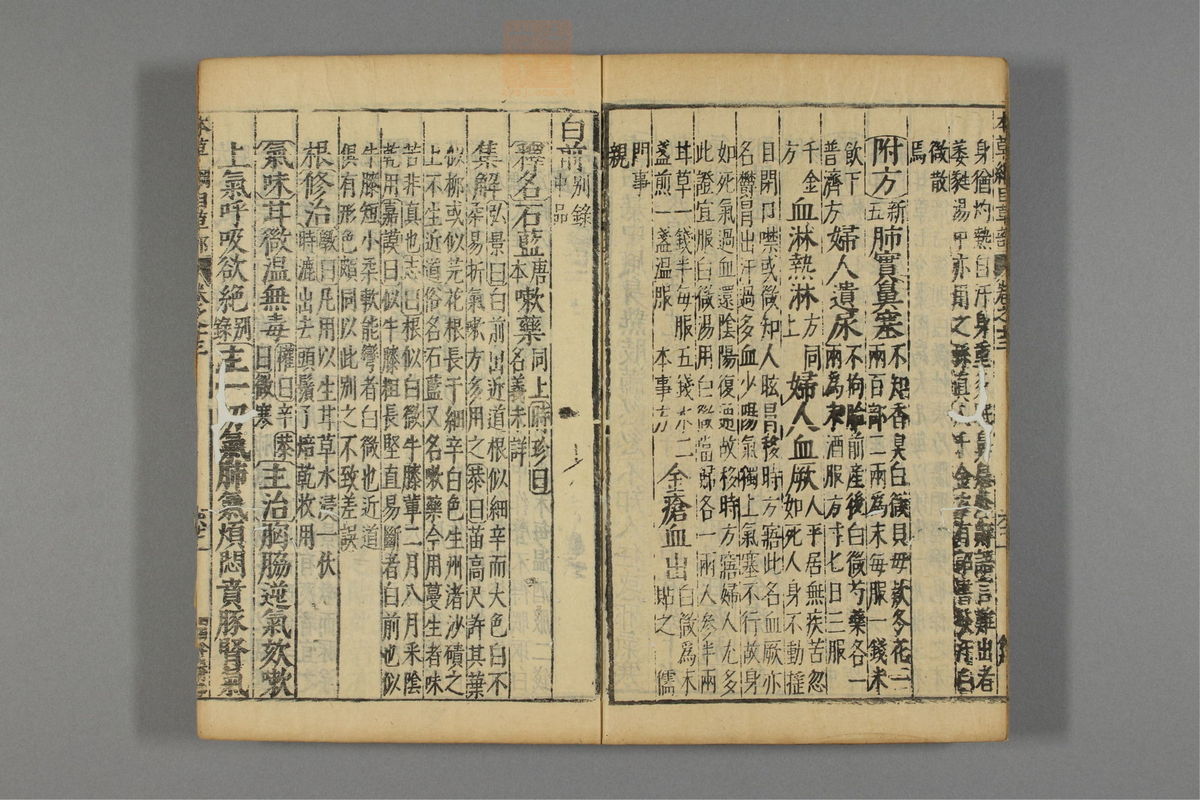 身猶灼熱自汗身重多眠鼻息必鼾語言難出者
萎蕤湯中亦用之孫真人千金方有詔書發汗白
微散
焉
附方新五肺實鼻塞不知香臭白薇貝母款冬花一
兩百部二兩為末每服一錢米
飲下
普濟方婦人遺尿不拘胎前産後白薇芍藥各一
兩為末酒服方寸七日三服
千金
方血淋熱淋方同
上婦人血厥人平居無疾苦忽
如死人身不動揺
目閉口噤或微知人眩冒移時方寤此名血厥亦
名鬱冒出汗過多血少陽氣獨上氣塞不行故身
如死氣過血還陰陽復通故移時方寤婦人尤多
此證宜服白薇湯用白薇當歸各一兩人參半兩
甘草一錢半每服五錢水二
盞煎一盞温服 本事方金瘡血出白薇為末
貼之 儒
門事
親
白前別錄
中品
釋名石藍唐
本嗽藥同上時珍曰
名義未詳
集解弘景曰白前出近道根似細辛而大色白不
柔易折氣嗽方多用之恭曰苗高尺許其葉
似栁或似芫花根長于細辛白色生州渚沙磧之
上不生近道俗名石藍又名嗽藥今用蔓生者味
苦非真也志曰根似白薇牛膝輩二月八月采陰
乾用嘉謨曰似牛膝粗長堅直易斷者白前也似
牛膝短小柔軟能彎者白微也近道
俱有形色頗同以此別之不致差誤
根修治斆曰凡用以生甘草水浸一伏
時漉出去頭鬚了焙乾收用
氣味甘微温無毒權曰辛恭
曰微寒主治胸脇逆氣欬嗽
上氣呼吸欲絶別
錄主一切氣肺氣煩悶賁豚腎氣
本草綱目草部 卷之十三